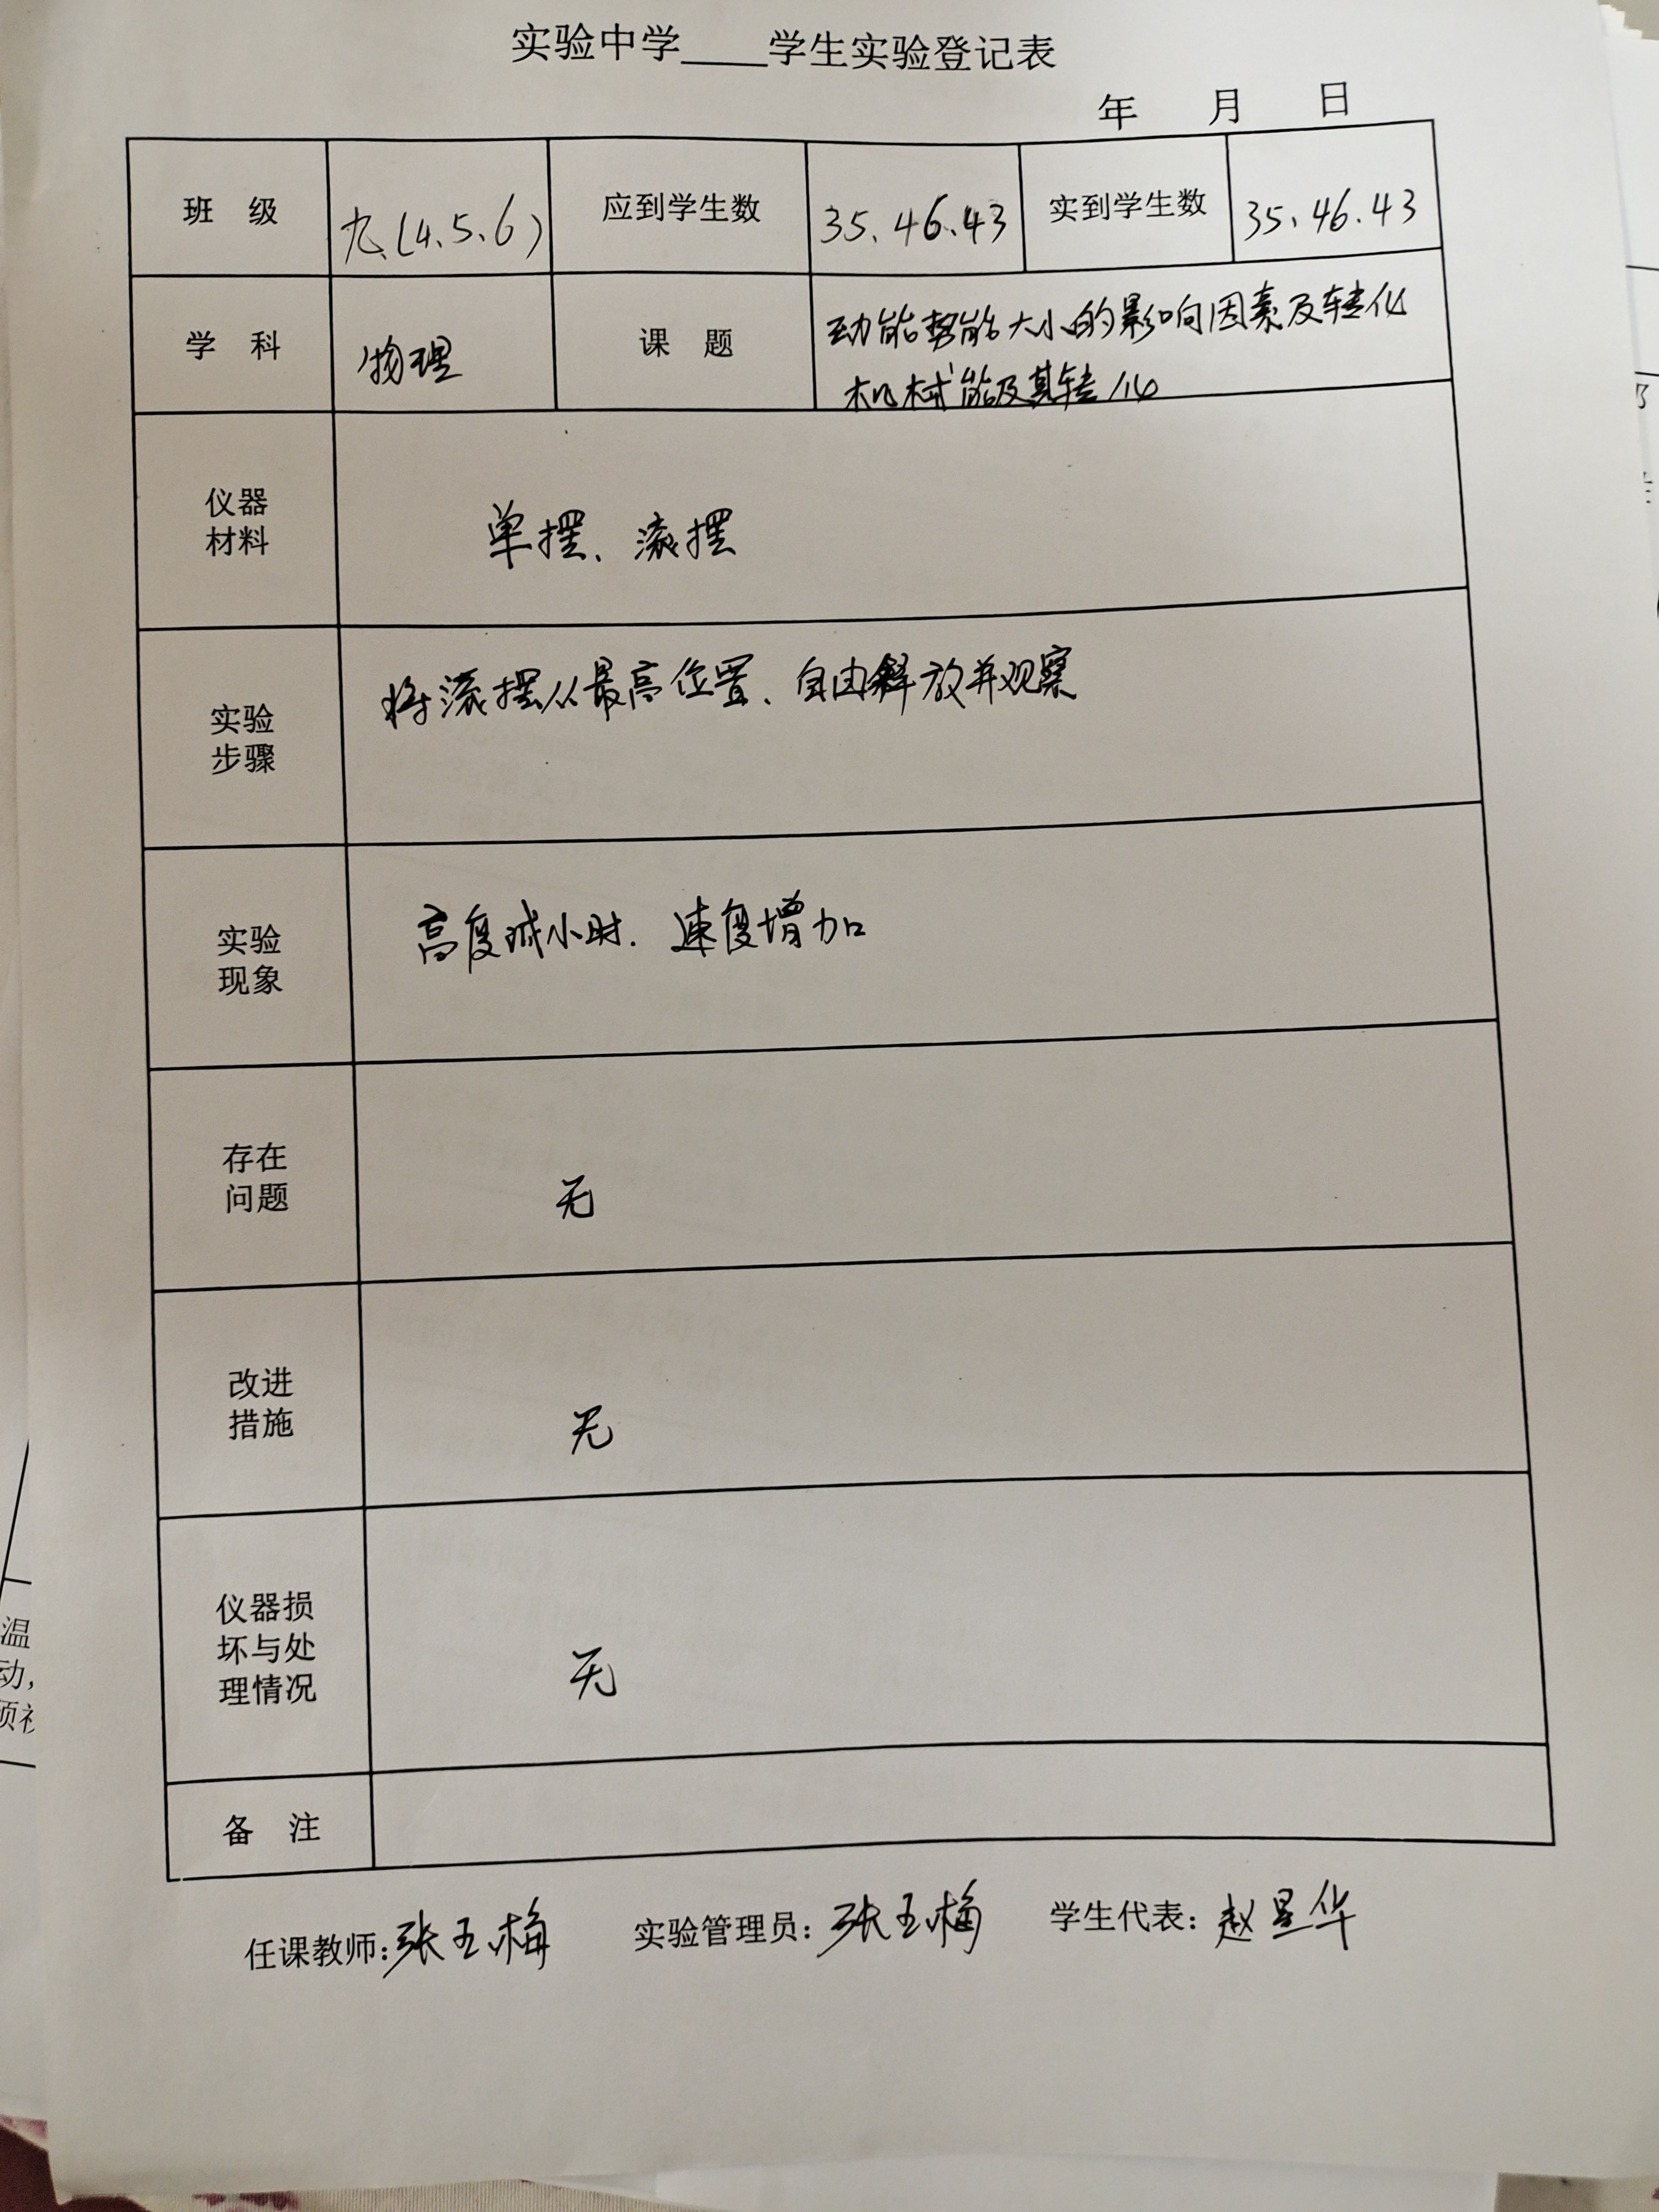 实验中学____学生实验登记表
年 月 日
班 级 九(4、5、6) 应到学生数 35、46、43 实到学生数 35、46、43
学 科 物理 课 题 动能势能大小的影响因素及转化
机械能及其转化
仪器
材料
单摆、滚摆
实验
步骤
将滚摆从最高位置、自由释放并观察
实验
现象
高度减小时.速度增加
存在
问题
无
改进
措施
无
仪器损
坏与处
理情况
无
备 注
任课教师:张玉梅 实验管理员:张玉梅 学生代表:赵星华
温
动,